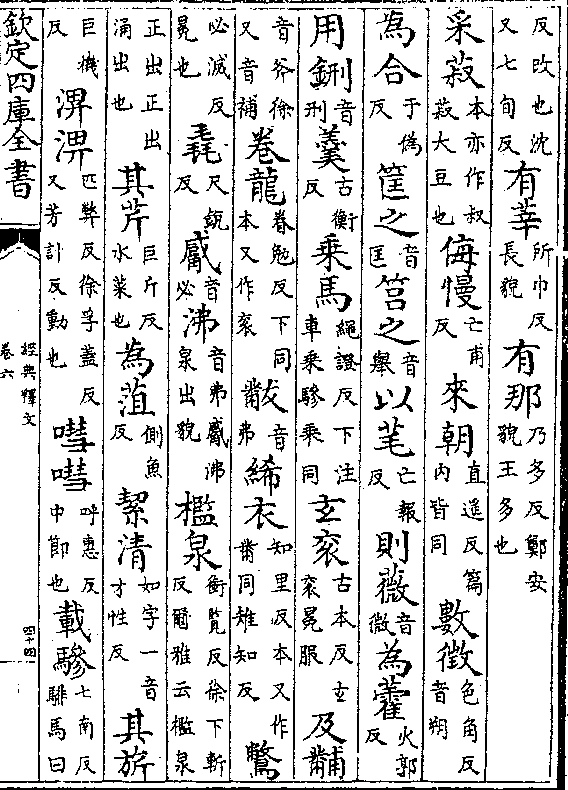 反攺也沈又七旬反有莘所巾反長貌有那乃多反鄭安貌王多也
采菽本亦作叔菽大豆也侮慢亡甫反來朝直遥反篇内皆同數徴色角反音朔
為合于偽反筐之音匡筥之音舉以芼亡報反則薇音微為藿火郭反
用鉶音刑羮古衡反乗馬繩證反下注車乗驂乗同𤣥衮古本反𤣥衮冕服及黼
音斧徐又音補卷龍眷勉反下同本又作衮黻音弗絺衣知里反本又作黹同雉知反鷩
必滅反冕也毳尺鋭反觱音必沸音弗觱沸泉出貌檻泉銜覽反徐下斬反爾雅云檻泉
正出正出涌出也其芹巨斤反水菜也為菹側魚反絜清如字一音才性反其旂
巨機反淠淠匹弊反徐孚蓋反又芳計反動也嘒嘒呼惠反中節也載驂七南反騑馬曰
欽定四庫全書
經典釋文
卷六
四十四